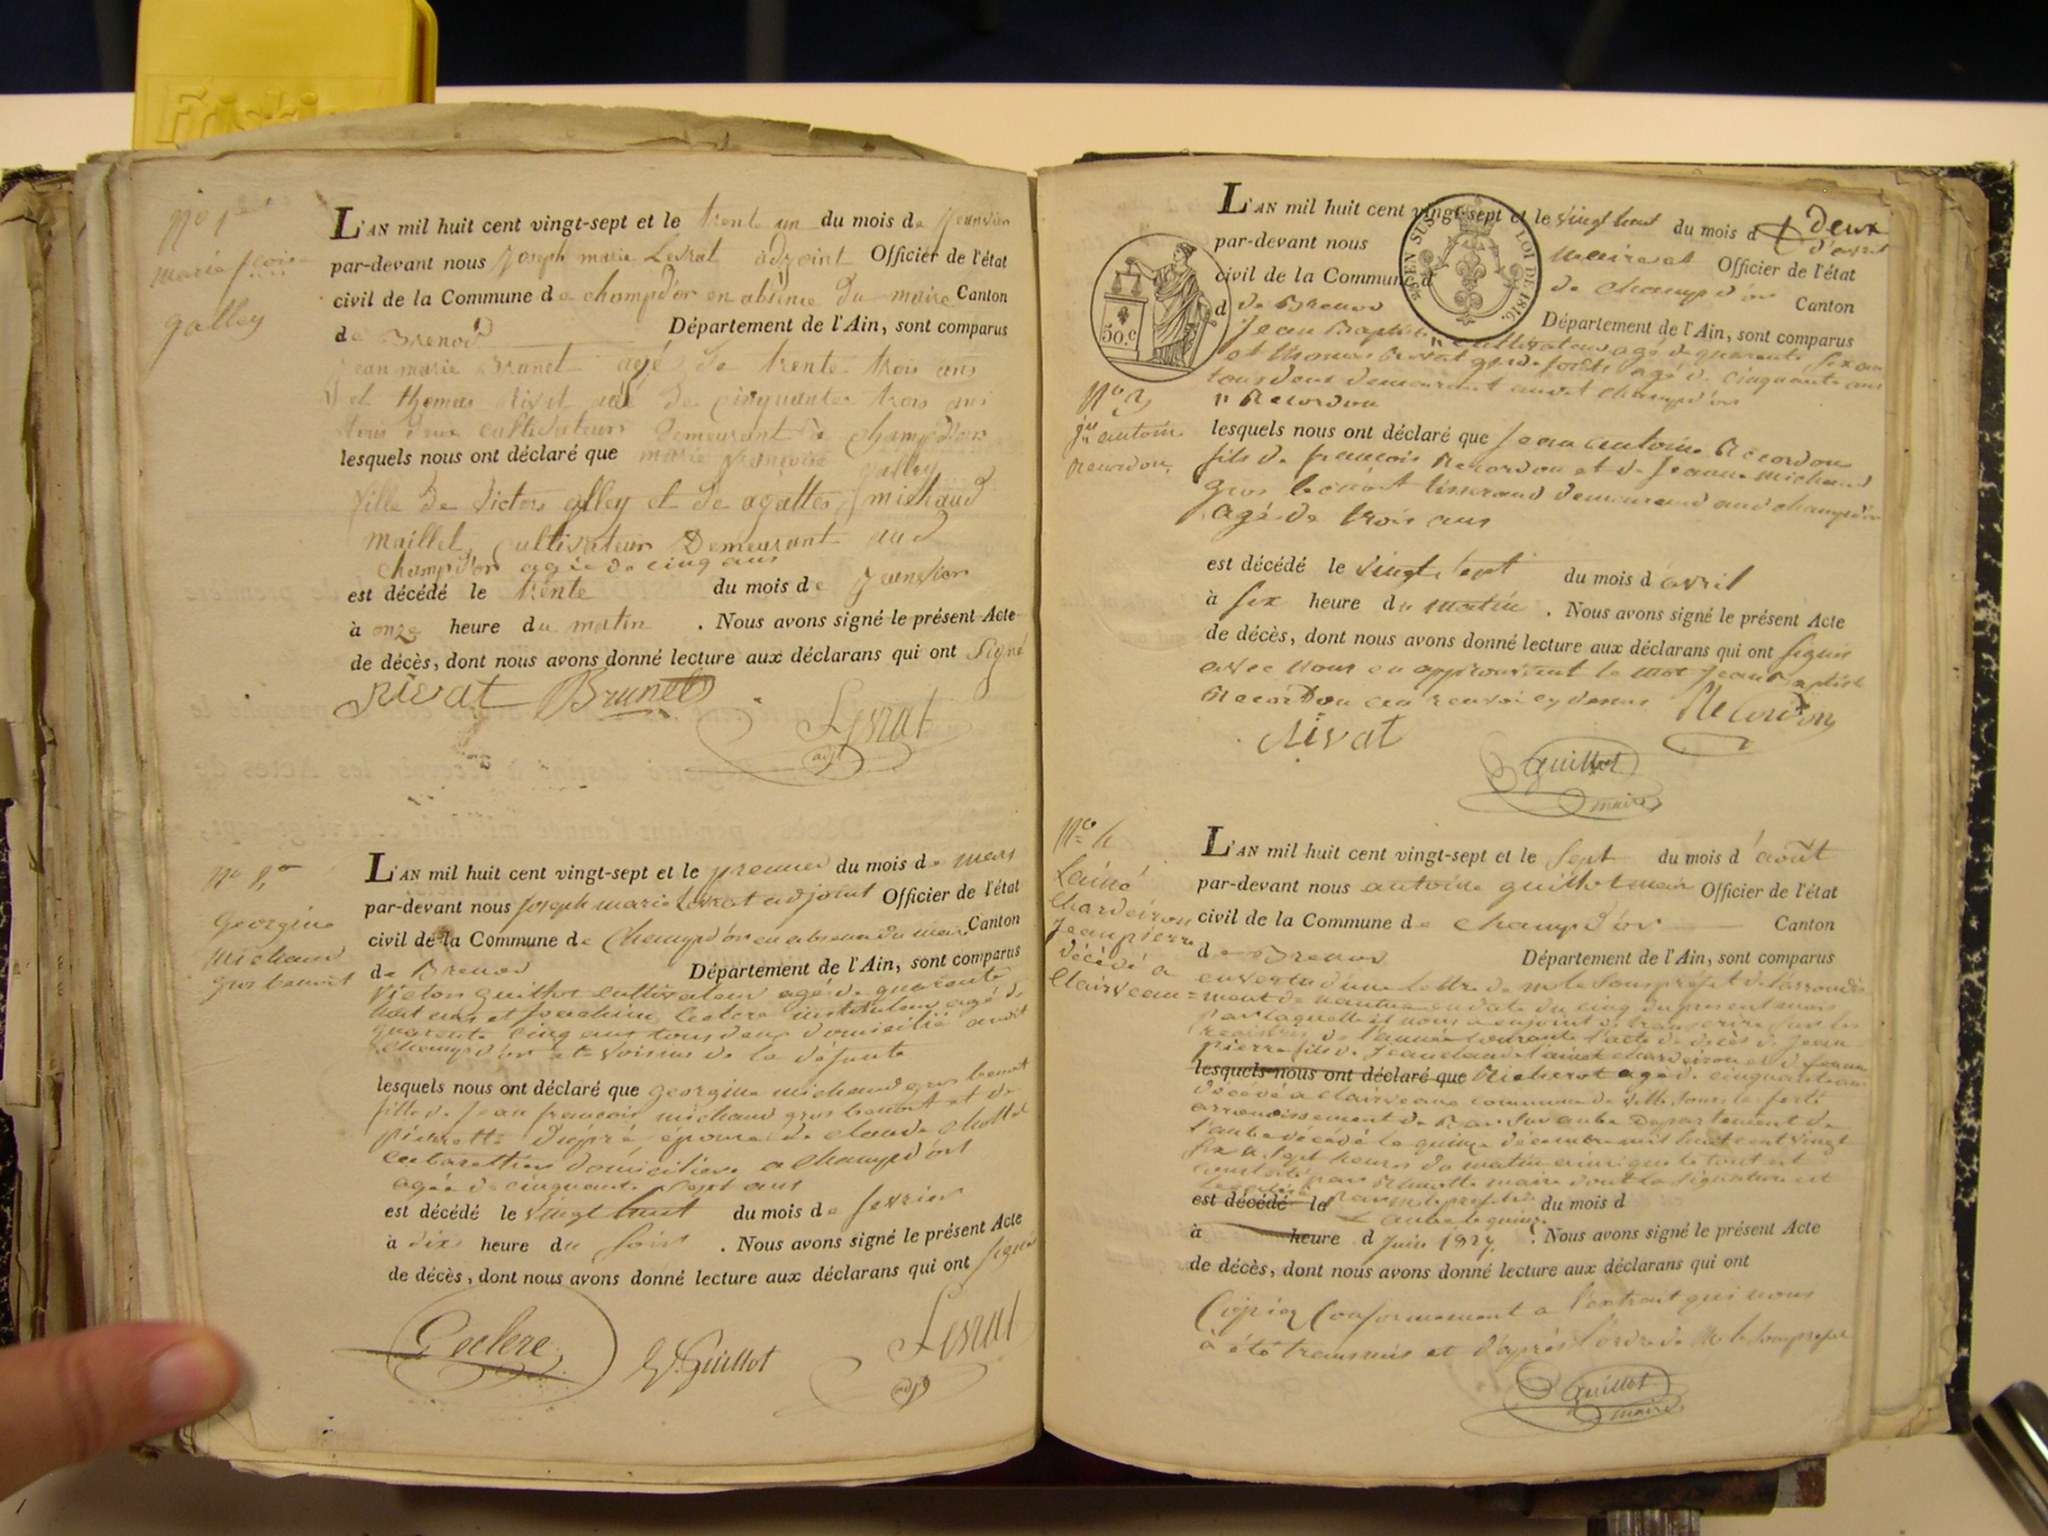 No 1er
marie françoise
galley
L'AN mil huit cent vingt-sept et le trente un du mois de Jeanvier
par-devant nous Joseph marie Levrat adjoint Officier de l'état
civil de la Commune de champd'or en absence du maire Canton
de Brenod Département de l'Ain, sont comparus
Jean marie Brunet agé de trente trois ans
et thomas Rivat agé de cinquante trois ans
tous deux cultivateurs demeurant à champd'or
lesquels nous ont déclaré que marie françoise galley
fille de victor galley et de agathe michaud
maillet, cultivateur Demeurant aud
champd'or agée de cinq ans
est décédé le trente du mois de Jeanvier
à onze heure du matin . Nous avons signé le présent Acte
de décès, dont nous avons donné lecture aux déclarans qui ont signé
Rivat Brunet
Levrat
adj
No 2
Georgine
michaud
gros benoit
L'AN mil huit cent vingt-sept et le premier du mois de mars
par-devant nous Joseph marie Levrat adjoint Officier de l'état
civil de la Commune de Champd'or en absence du maire Canton
de Brenod Département de l'Ain, sont comparus
victor guillot cultivateur agé de quarante
huit ans et Joachim Leclerc instituteur agé de
quarante cinq ans tous deux domicilié audit
Champd'or et voisins de la défunte
lesquels nous ont déclaré que georgine michaud gros benoit
fille de Jean françois michaud gros benoit et de
pierrette Dupré épouse de claude
cabarettier domiciliée a Champd'or
agée de cinquante sept ans
est décédé le vingt huit du mois de fevrier
à dix heure du soir . Nous avons signé le présent Acte
de décès, dont nous avons donné lecture aux déclarans qui ont signé
Leclerc V. Guillot Levrat
adj
L'AN mil huit cent vingt-sept et le vingt huit du mois d deux
d'avril
par-devant nous maire et Officier de l'état
civil de la Commune d de champd'or Canton
d de Brenod Département de l'Ain, sont comparus
SUS LOI DE 1816.
50.c
Jean Baptiste " cultivateur agé de quarante six ans
et thomas Rivat garde forêts agé de cinquante ans
tous deux demeurant audit champd'or
" Recordon
No 3
jn antoine
Recordon
lesquels nous ont déclaré que Jean antoine Recordon
fils de francois Recordon et de Jeanne michaud
gros benoit tisserand demeurant aud champd'or
agé de trois ans
est décédé le vingt sept du mois d'avril
à six heure du matin . Nous avons signé le présent Acte
de décès, dont nous avons donné lecture aux déclarans qui ont signé
avec nous en approuvant le mot Jean Baptiste
Recordon en renvoi cy dessus Recordon
Rivat
Guillot
maire
No 4
Lainé
Chardeiron
Jean pierre
décédé a
Clairveau
L'AN mil huit cent vingt-sept et le sept du mois d'août
par-devant nous antoine guillot maire Officier de l'état
civil de la Commune de champd'or Canton
de Brenod Département de l'Ain, sont comparus
en vertu d'une lettre de mr le Souspréfet de l'arrondis-
ment de nantua en date du cinq du present mois
par laquelle il nous a enjoint de transcrire sur les
registres de l'année courante l'acte de décès de Jean
pierre fils de Jean claude Lainé chardeiron et de Jeanne
lesquels nous ont déclaré que Richerot agé de cinquante ans
décédé a clairveaux commune de ville sous la ferté
arrondissement de Bar sur aube Departement de
l'aube décédé le quinze décembre mil huit cent vingt
six a sept heures du matin ainsi que le tout est
constaté par maire dont la signature est
est décédé le par mr le préfet du mois d
l'aube le quinze
à heure d Juin 1827. . Nous avons signé le présent Acte
de décès, dont nous avons donné lecture aux déclarans qui ont
Copiez Conformement a l'extrait qui nous
à été transmis et d'après l'ordre de Mr le Souspréfet
Guillot
maire